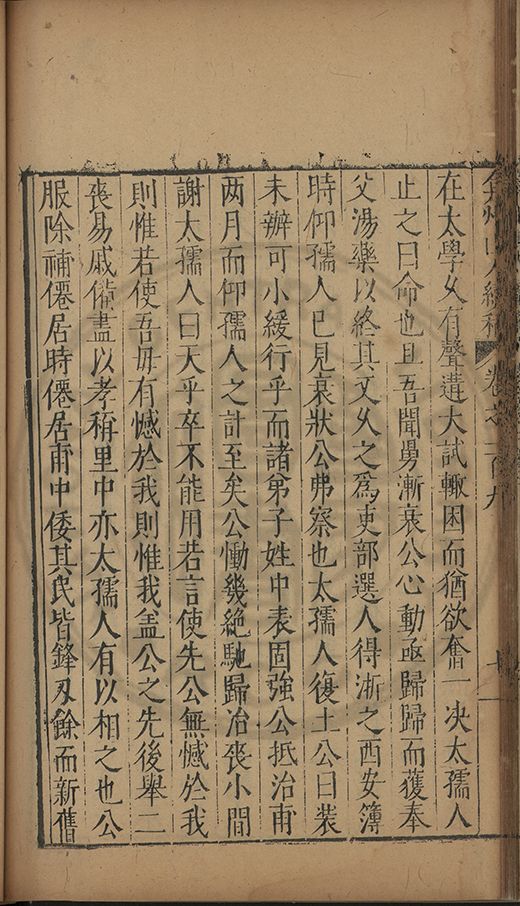 弇州山人續稿 卷之一百九
在太學久有聲遘大試輙困而猶欲奮一决太孺人
止之曰命也且吾聞舅漸衰公心動亟歸歸而獲奉
父湯藥以終其又久之爲吏部選人得浙之西安簿
時仰孺人已見衰狀公弗察也太孺人復土公曰裝
未辦可小緩行乎而諸弟子姓中表固強公抵治甫
两月而仰孺人之訃至矣公慟幾絶馳歸冶丧小間
謝太孺人曰天乎卒不能用若言使先公無憾於我
則惟若使吾毋有憾於我則惟我盖公之先後舉二
喪易戚備盡以孝稱里中亦太孺人有以相之也公
服除補僊居時僊居甫中倭其民皆鋒刃餘而新舊